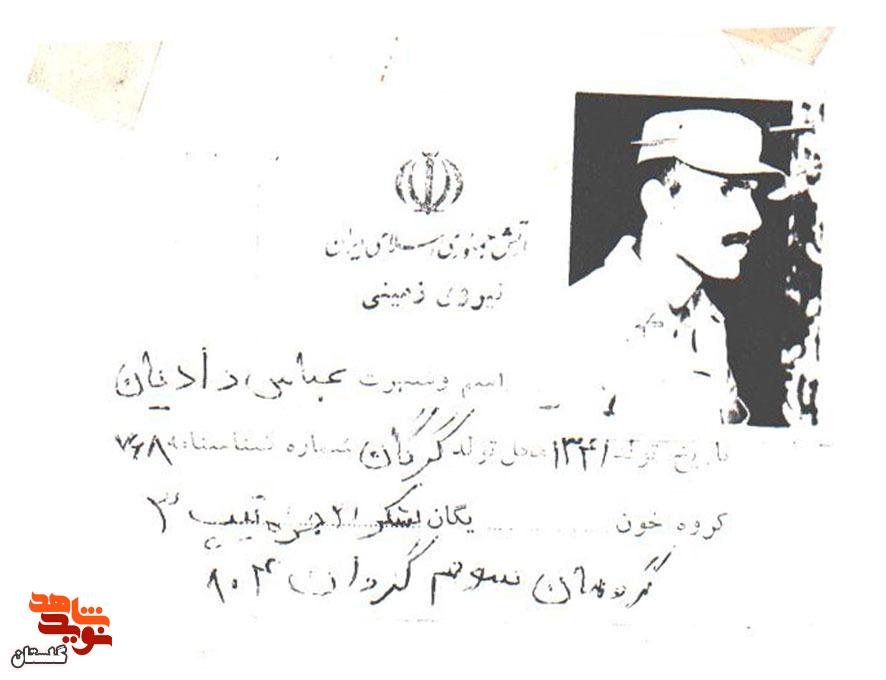 ارتش جمهوری اسلامی ایران
نیروی زمینی
اسم و شهرت عباس دادیان
تاریخ تولد ۱۳۴۱ محل تولد گرگان شماره شناسنامه ۷۶۸
گروه خون یگان لشکر ۲۱ تیپ ۳
گروهان سوم گردان ۸۰۴
نوید شاهد
گلستان